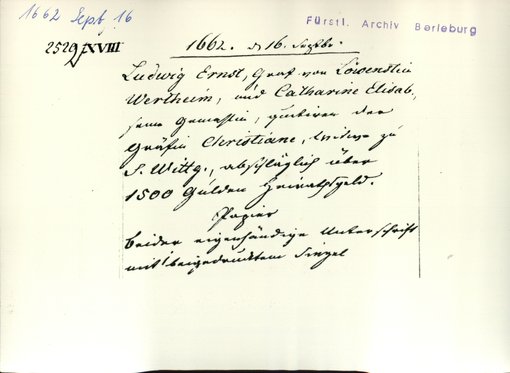 1662 Sept 16
Fürstl. Archiv Berleburg
2529/XVIII
1662. d 16. Septbr.
Ludwig Ernst, Graf von Löwenstein
Wertheim, und Catharine Elisab.,
seine Gemahlin, quitiren der
Gräfin Christiane, Witwe zu
S. Wittg., abschläglich über
1500 Gulden Heirathsgeld.
Papier
beider eigenhändige Unterschrift
mit beigedrucktem Siegel